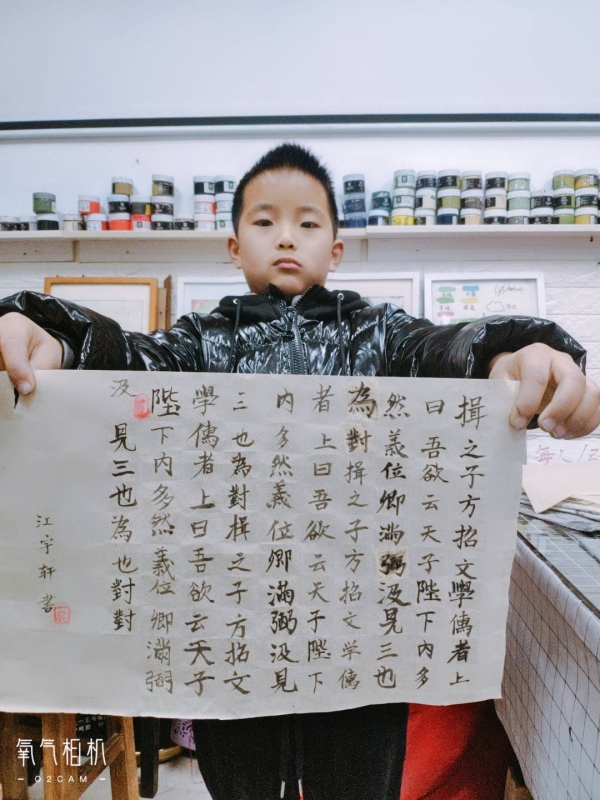 揖之子方招文學儒者上
曰吾欲云天子陛下內多
然義位卿滿弼汲見三也
為對揖之子方招文学儒
者上曰吾欲云天子陛下
內多然義位卿滿弼汲見
三也為對揖之子方招文
學儒者上曰吾欲云天子
陛下內多然義位卿滿弼
汲見三也為也對對
江宇轩書
氧气相机
O2CAM